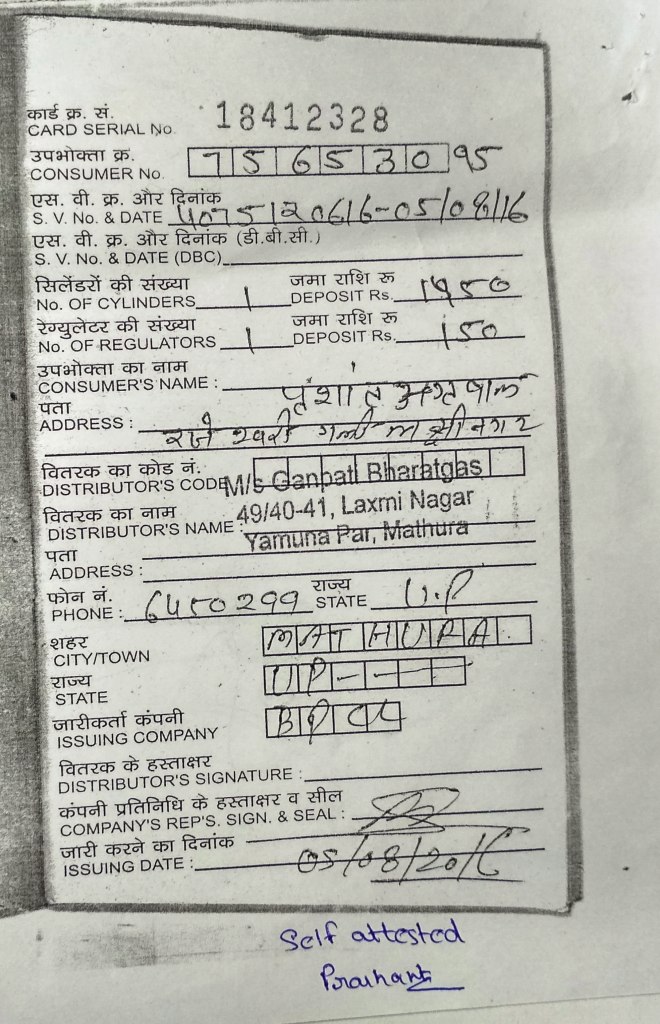 कार्ड क्र. सं.
CARD SERIAL No. 18412328
उपभोक्ता क्र.
CONSUMER No. 75653095
एस. वी. क्र. और दिनांक
S. V. No. & DATE 4075120616-05/08/16
एस. वी. क्र. और दिनांक (डी.बी.सी.)
S. V. No. & DATE (DBC)
सिलेंडरों की संख्या जमा राशि रू
No. OF CYLINDERS 1 DEPOSIT Rs. 1450
रेग्युलेटर की संख्या जमा राशि रू
No. OF REGULATORS 1 DEPOSIT Rs. 150
उपभोक्ता का नाम
CONSUMER'S NAME : प्रशांत अग्रवाल
पता
ADDRESS : गली लक्ष्मी नगर
वितरक का कोड नं.
DISTRIBUTOR'S CODE M/s Ganpati Bharatgas
वितरक का नाम 49/40-41, Laxmi Nagar
DISTRIBUTOR'S NAME : Yamuna Par, Mathura
पता
ADDRESS :
फोन नं. राज्य
PHONE : 6450299 STATE U.P
शहर MATHURA
CITY/TOWN
राज्य UP---
STATE
जारीकर्ता कंपनी BPCL
ISSUING COMPANY
वितरक के हस्ताक्षर
DISTRIBUTOR'S SIGNATURE :
कंपनी प्रतिनिधि के हस्ताक्षर व सील
COMPANY'S REP'S. SIGN. & SEAL :
जारी करने का दिनांक
ISSUING DATE : 05/08/2016
Self attested
Prashant